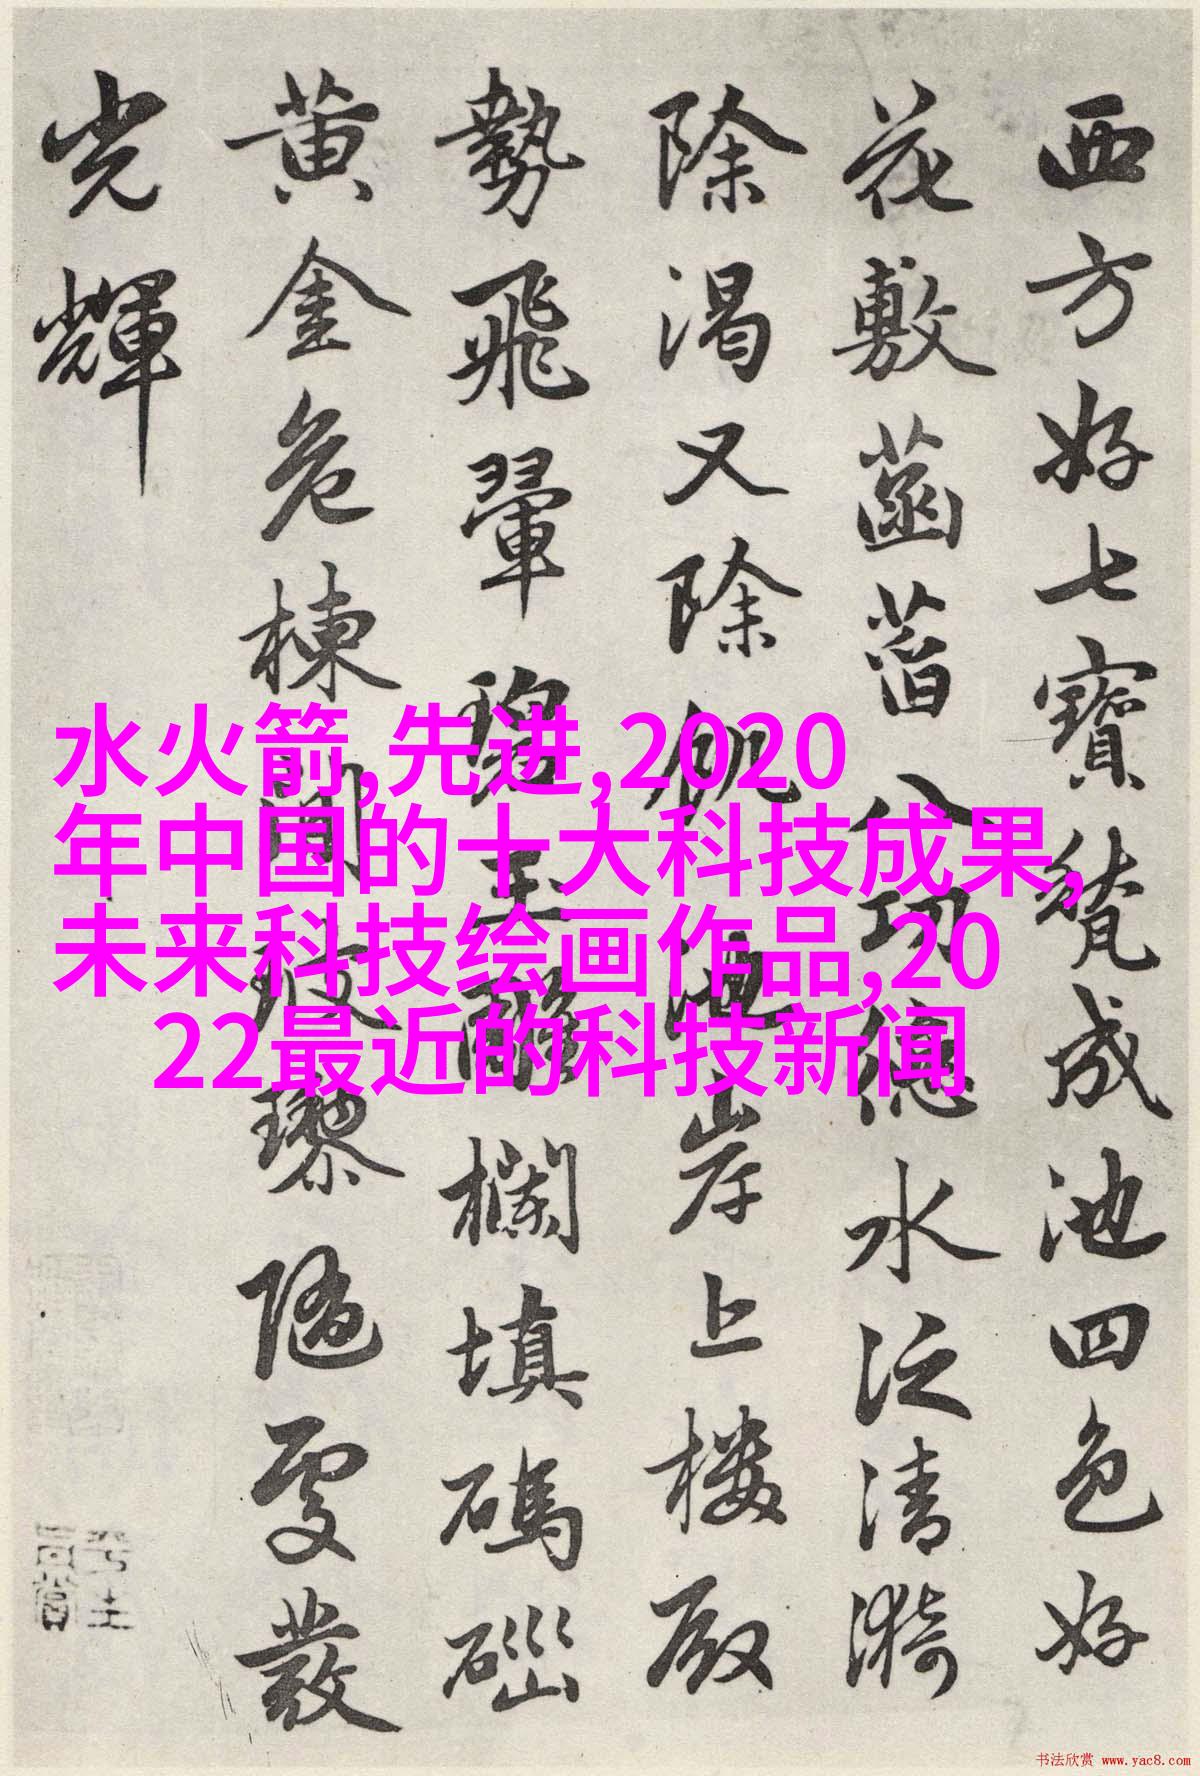 西方好七寶甃成池四色好
花敷菡萏八功德水泛清漪
除渴又除飢池岸上樓殿
勢飛翬碧玉雕欄填碼碯
黃金危棟間玻瓈隨處發
光輝
水火箭,先进,2020
年中国的十大科技成果,
未来科技绘画作品,20
22最近的科技新闻
书法欣赏 www.yac8.com